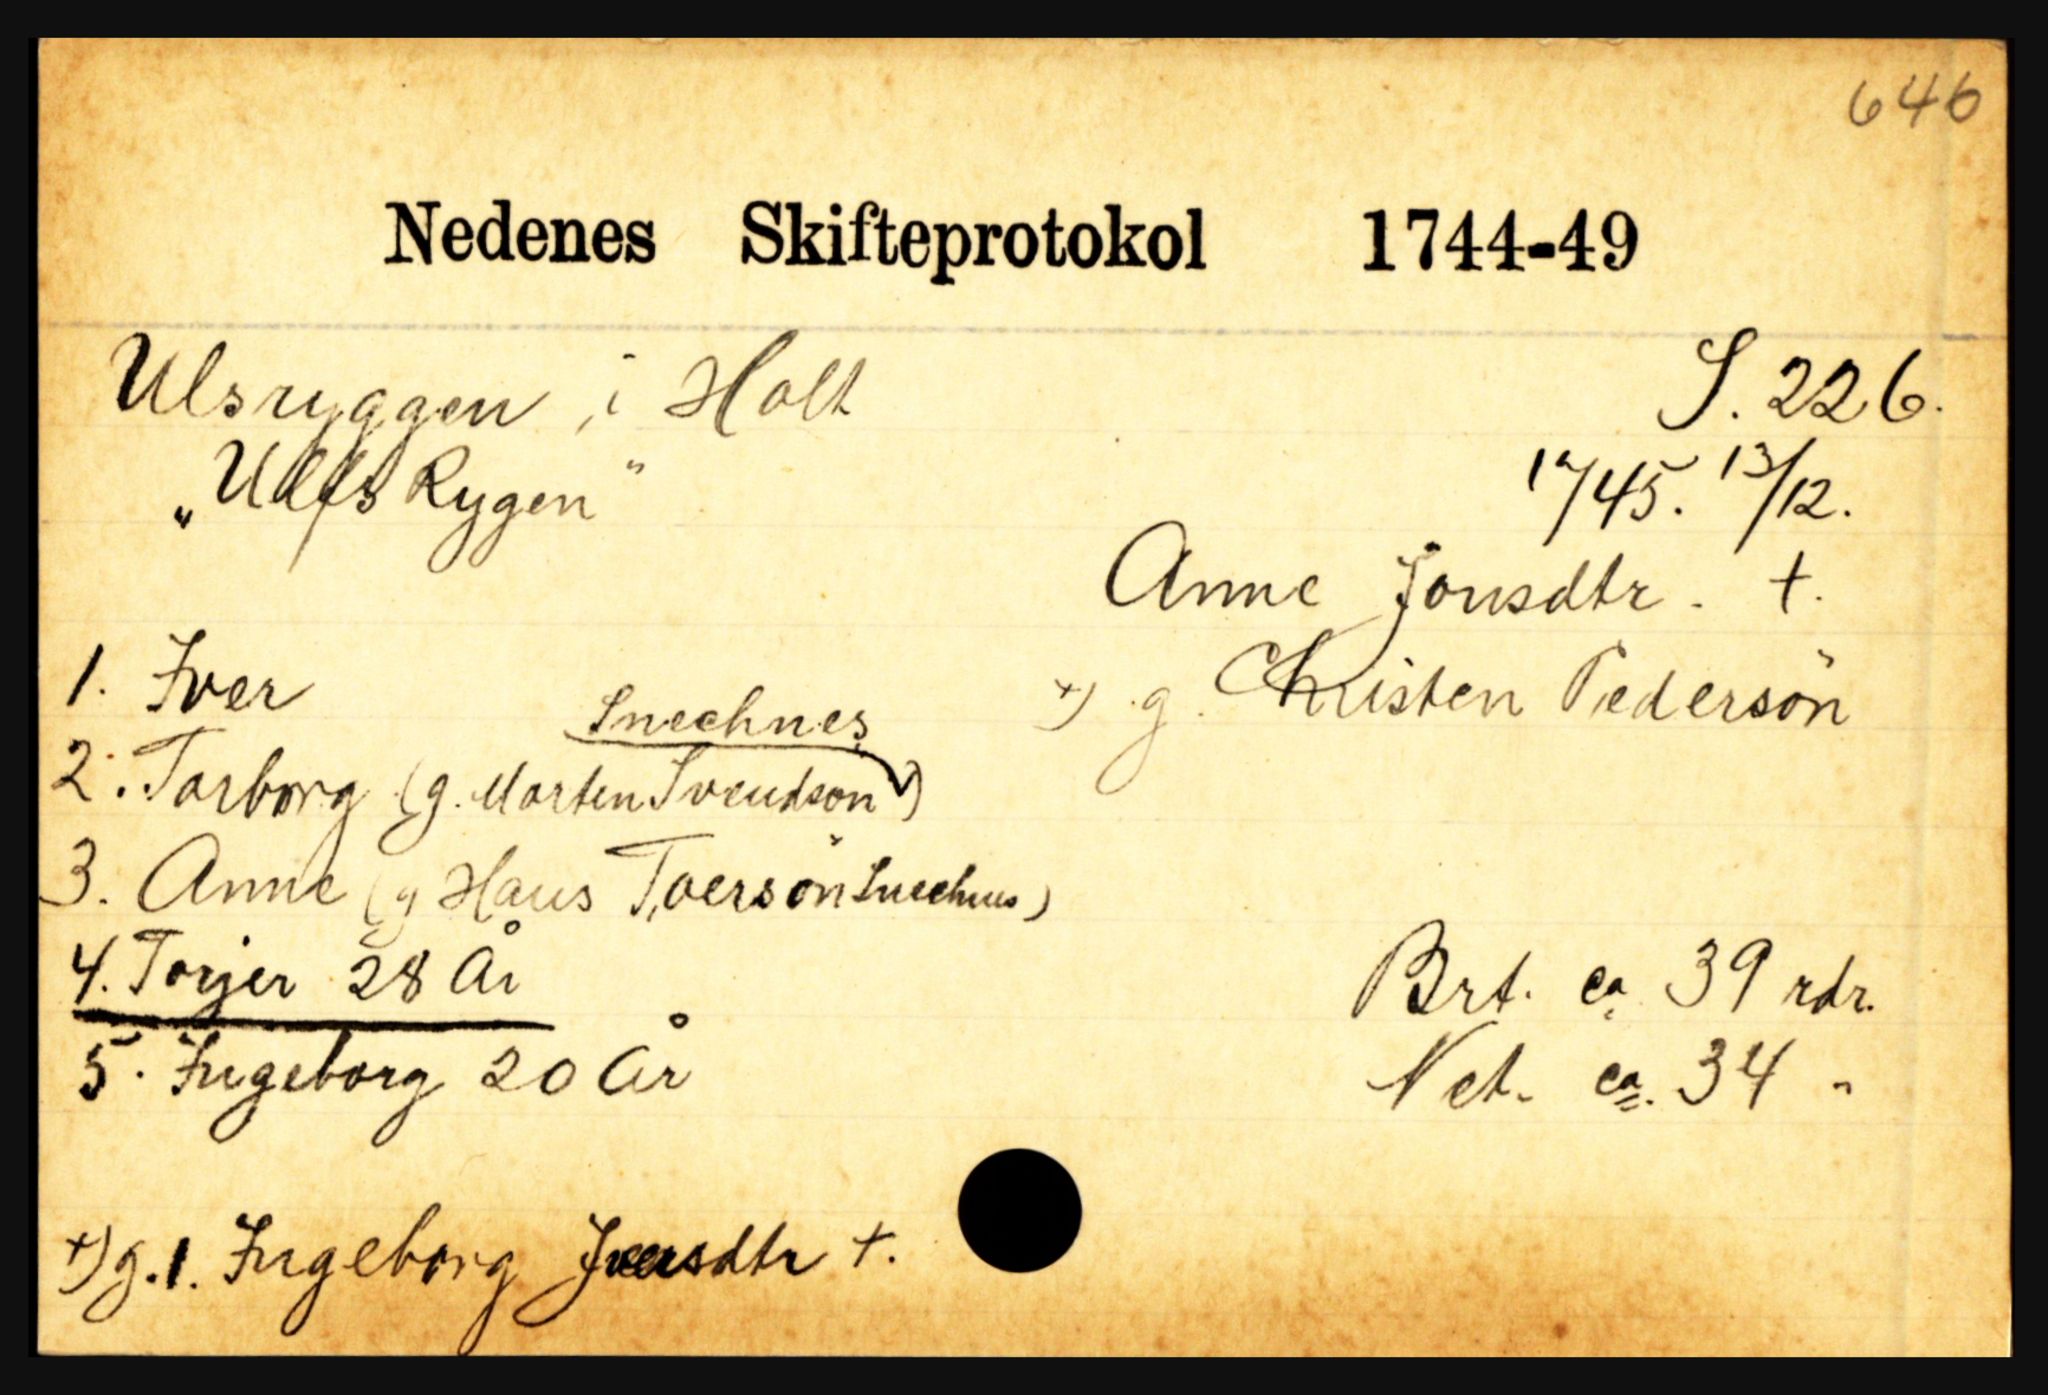 646
Nedenes Skifteprotokol 1744-49
Ulsryggen i Holt S. 226.
„Ulfs Rygen" 1745. 13/12.
Anne Jonsdtr. †.
1. Iver +) g. Christen Pedersön
Snechnes
2. Torborg (g. Morten Svendson)
3. Anne (g Hans Iversön Snechnes)
4. Torjer 28 År Brt. ca 39 rdr.
5. Ingeborg 20 År Net. ca. 34 "
+) g. 1. Ingeborg Iversdtr †.